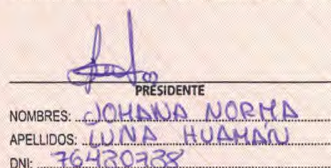 PRESIDENTE
NOMBRES: JOHANA NORMA
APELLIDOS: LUNA HUAMAN
DNI: 76430738